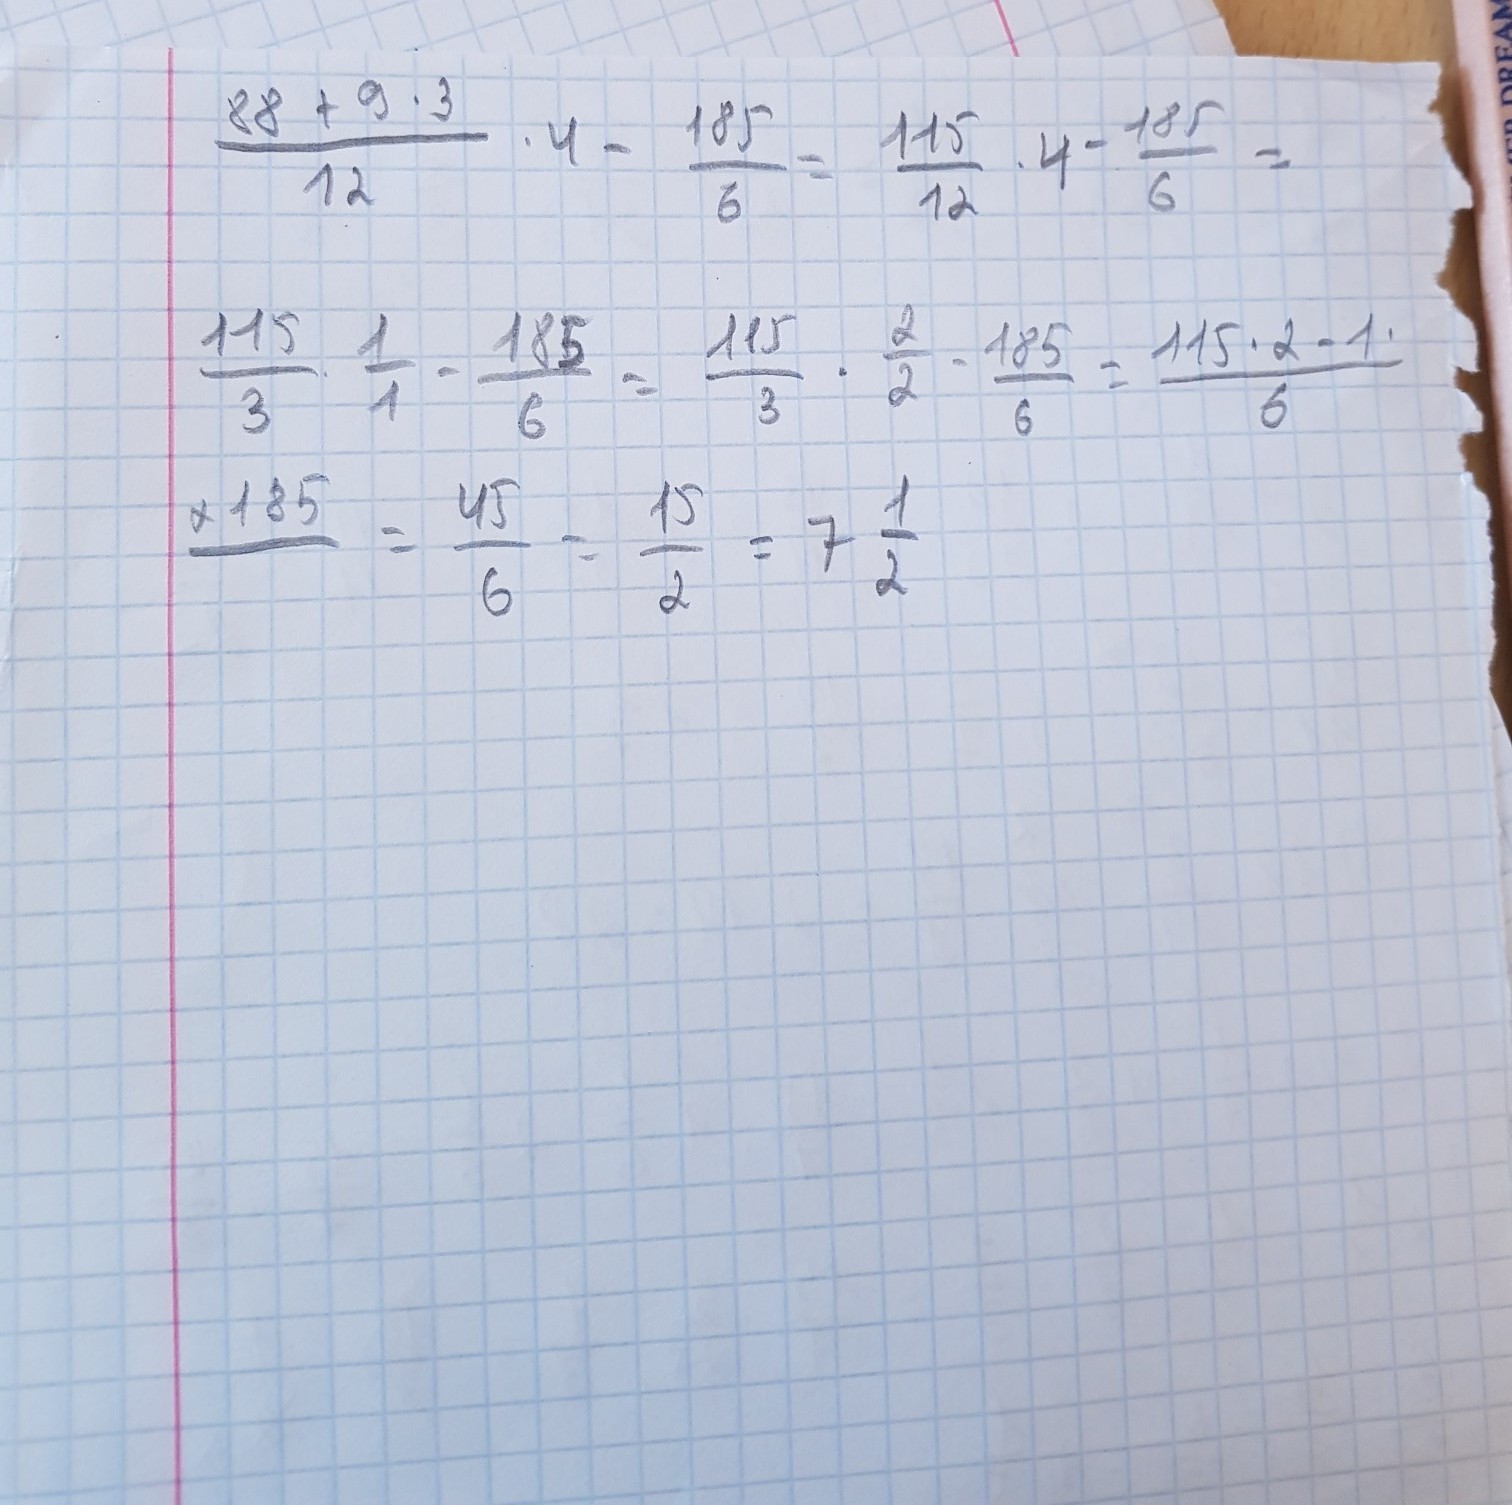 (88 + 9 · 3)/12 · 4 - 185/6 = 115/12 · 4 - 185/6 =
115/3 · 1/1 - 185/6 = 115/3 · 2/2 - 185/6 = (115 · 2 - 1 ·)/6
x 185 = 45/6 = 15/2 = 7 1/2
DREAM